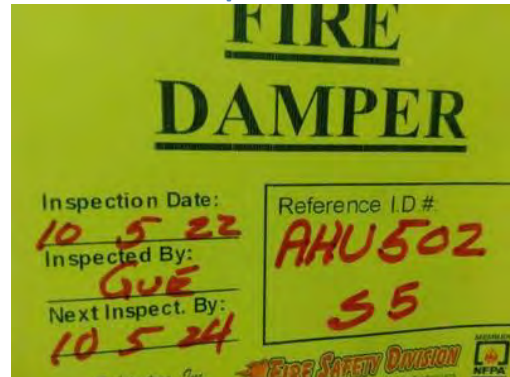 FIRE
DAMPER
Inspection Date:
10 5 22
Inspected By:
GUE
Next Inspect. By:
10 5 24
Reference I.D #:
AHU502
S5
FIRE SAFETY DIVISION
NFPA